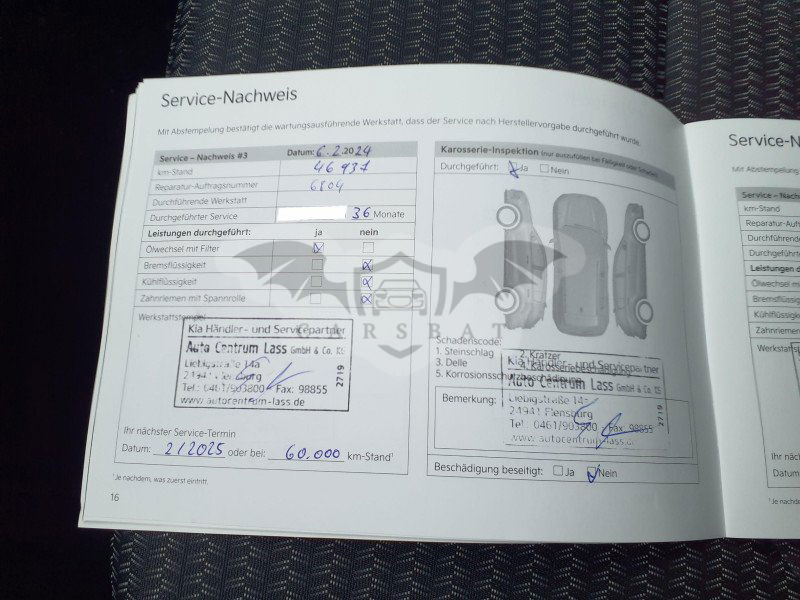 Service-Nachweis
Mit Abstempelung bestätigt die wartungsausführende Werkstatt, dass der Service nach Herstellervorgabe durchgeführt wurde.
Service – Nachweis #3 Datum: 6.2.2024
km-Stand 46 937
Reparatur-Auftragsnummer 6804
Durchführende Werkstatt
Durchgeführter Service 36 Monate
Leistungen durchgeführt: ja nein
Ölwechsel mit Filter
Bremsflüssigkeit
Kühlflüssigkeit
Zahnriemen mit Spannrolle
Werkstattstempel
Kia Händler- und Servicepartner
Auto Centrum Lass GmbH & Co. KG
Liebigstraße 14a
24941 Flensburg
Tel.: 0461/903800 Fax: 98855
www.autocentrum-lass.de
2719
Ihr nächster Service-Termin
Datum: 2/2025 oder bei: 60.000 km-Stand¹
¹Je nachdem, was zuerst eintritt.
16
Karosserie-Inspektion (nur auszufüllen bei Fälligkeit oder Schäden)
Durchgeführt: Ja Nein
CARSBAT
Schadenscode:
1. Steinschlag 2. Kratzer
3. Delle 4. Karosseriebeschädigung
5. Korrosionsschutzbeschädigung
Kia Händler- und Servicepartner
Auto Centrum Lass GmbH & Co. KG
Bemerkung:
Liebigstraße 14a
24941 Flensburg
Tel.: 0461/903800 Fax: 98855
www.autocentrum-lass.de
2719
Beschädigung beseitigt: Ja Nein
Service-N
Mit Abstempelung
Service – Nachw
km-Stand
Reparatur-Auft
Durchführende
Durchgeführte
Leistungen d
Ölwechsel mit
Bremsflüssigk
Kühlflüssigke
Zahnriemen
Werkstatts
Ihr näch
Datum
¹Je nach